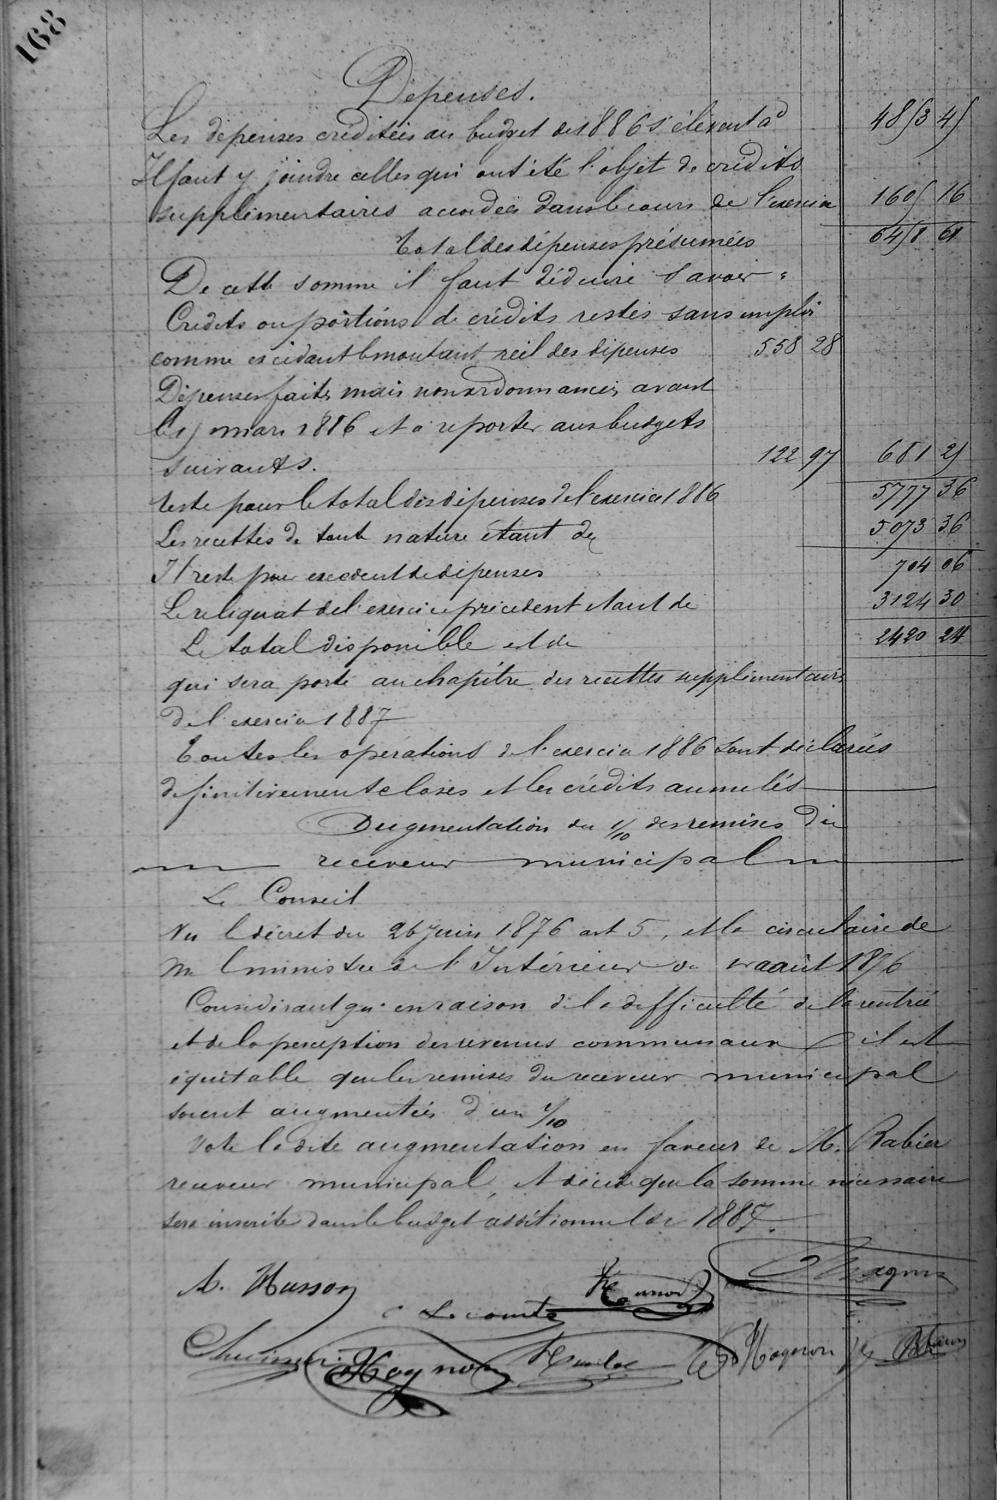 168
Dépenses.
Les dépenses créditées au budget de 1886 s'élèvent à 4853 45
Il faut y joindre celles qui ont été l'objet de crédits
supplémentaires accordés dans le cours de l'exercice 1605 16
total des dépenses présumées 6458 61
De cette somme il faut déduire Savoir :
Credits ou portions de crédits restés sans emploi
comme excédant le montant réel des dépenses 558 28
Dépenses faites mais non ordonnancées avant
le 15 mars 1886 et à reporter aux budgets
suivants. 122 97 681 25
reste pour le total des dépenses de l'exercice 1886 5777 36
Les recettes de toute nature étant de 5073 36
Il reste pour excédent de dépenses 704 06
Le reliquat de l'exercice précédent étant de 3124 30
Le total disponible est de 2420 24
qui sera porté au chapitre des recettes supplémentaires
de l'exercice 1887
Toutes les opérations de l'exercice 1886 sont déclarées
définitivement closes et les crédits annulés
Augmentation du 1/10 des remises du
receveur municipal
Le Conseil
Vu le décret du 26 juin 1876 art 5, et la circulaire de
M le ministre de l'Intérieur du août 1876
Considérant qu'en raison de la difficulté de la rentrée
et de la perception des revenus communaux il est
équitable que les remises du receveur municipal
soient augmentées d'un 1/10
Vote ladite augmentation en faveur de M. Rabier
receveur municipal, et décide que la somme nécessaire
sera inscrite dans le budget additionnel de 1887.
A. Husson
Lecomte
Hognon
Hognon